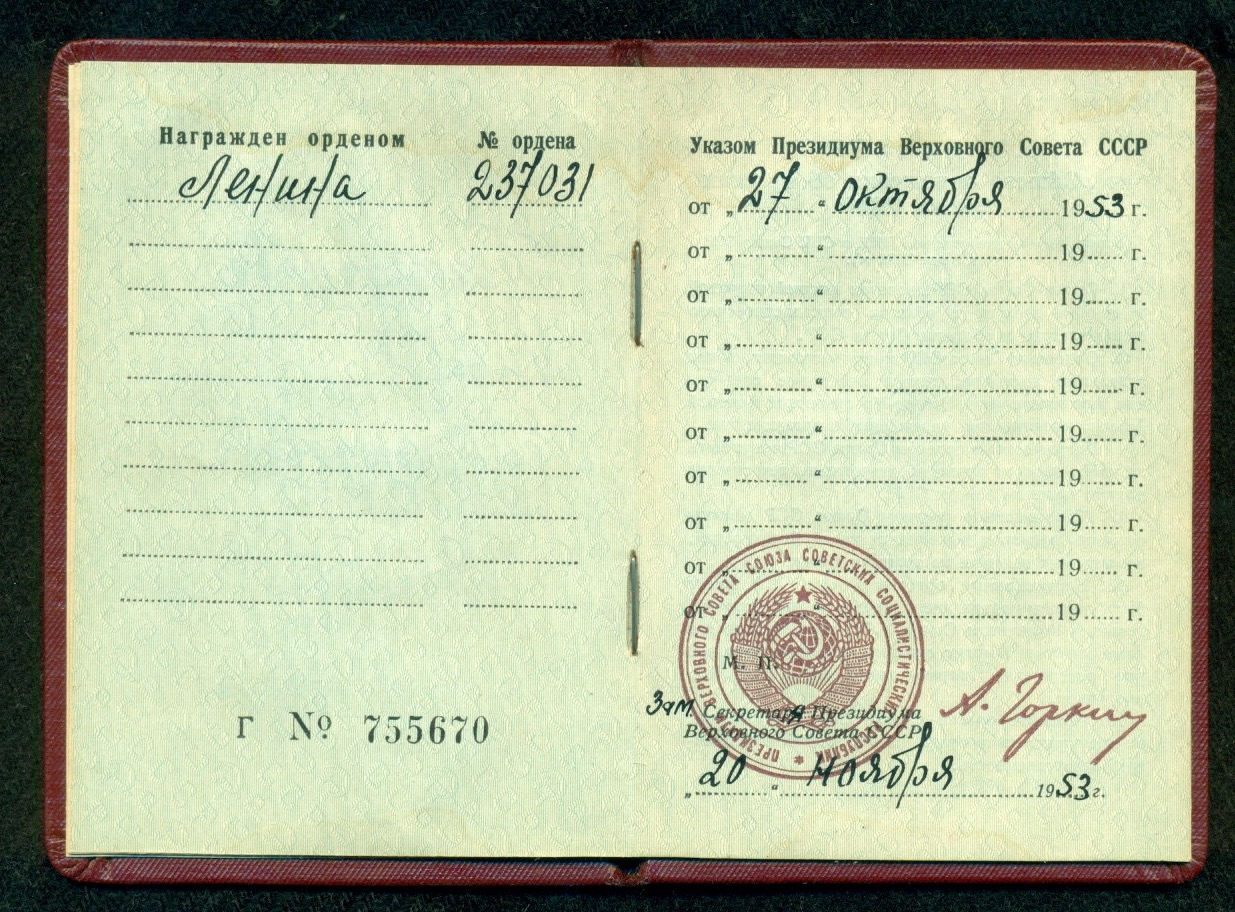 Награжден орденом
№ ордена
Ленина
237031
Г № 755670
Указом Президиума Верховного Совета СССР
от „27“ октября 1953 г.
от „ “ 19 г.
от „ “ 19 г.
от „ “ 19 г.
от „ “ 19 г.
от „ “ 19 г.
от „ “ 19 г.
от „ “ 19 г.
от „ “ 19 г.
от „ “ 19 г.
ПРЕЗИДИУМ ВЕРХОВНОГО СОВЕТА СОЮЗА СОВЕТСКИХ СОЦИАЛИСТИЧЕСКИХ РЕСПУБЛИК
М. П.
Зам. Секретаря Президиума
Верховного Совета СССР
А. Горкин
„20“ ноября 1953 г.